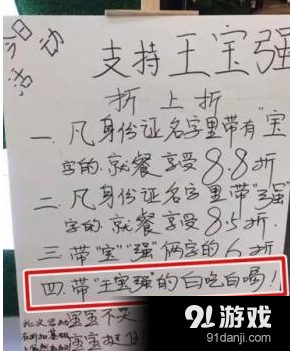 今日活动
支持王宝强
折上折
一.凡身份证名字里带有"宝"
字的.就餐享受8.8折
二.凡身份证名字里带"强"
字的.就餐享受8.5折.
三.带"宝""强"俩字的6折
四.带"王宝强"的白吃白喝!
91游戏
91danji.com